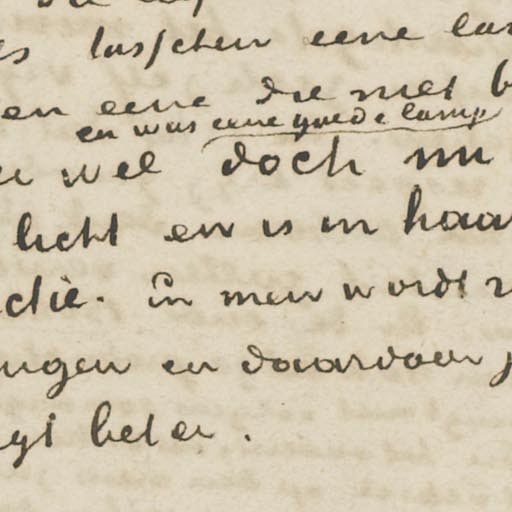 tusschen eene lam
en eene die niet b
en was eene goede lamp
wel doch nu
licht en is in haar
ctie. En men wordt
ingen en daardoor
gt beter.